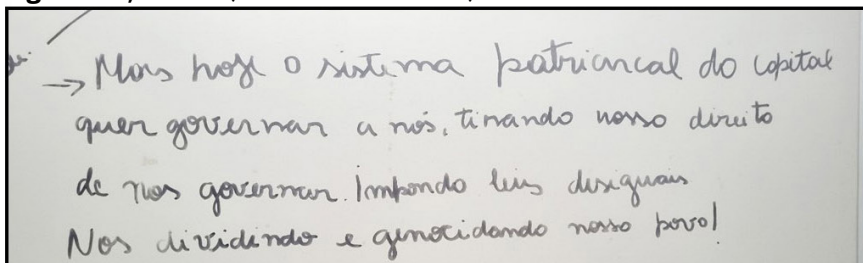 → Mas hoje o sistema patriarcal do capital
quer governar a nós, tirando nosso direito
de nos governar. Impondo leis desiguais
Nos dividindo e genocidando nosso povo!